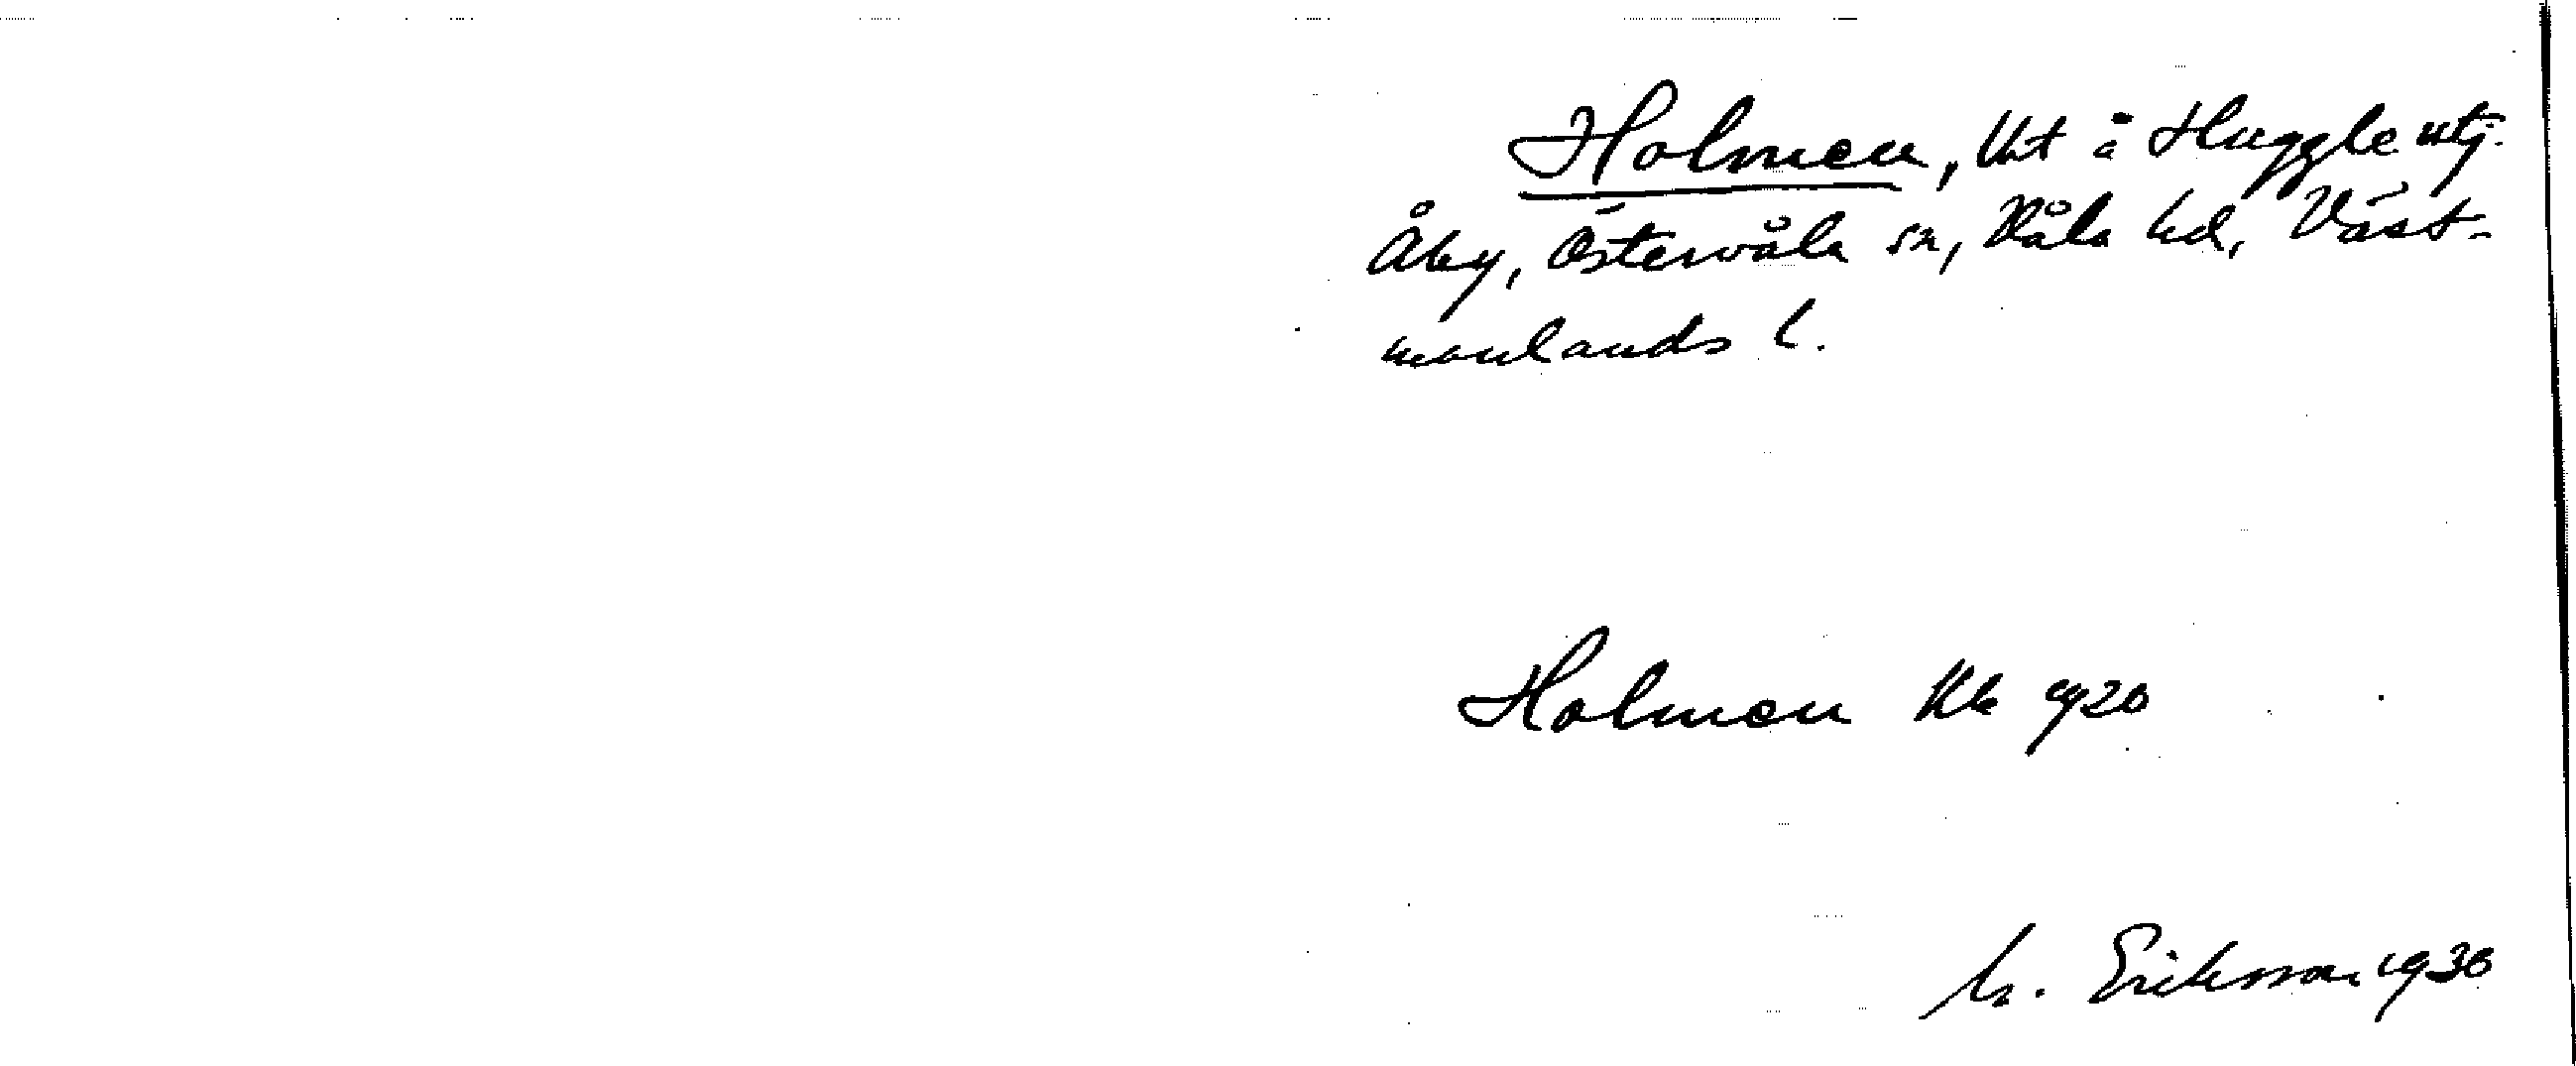 Holmen, Vat å Huggle utj.
Åby, Östervåla sn, Våla hd, Väst-
manlands l.
Holmen Kb 1920
M. Eriksson 1930